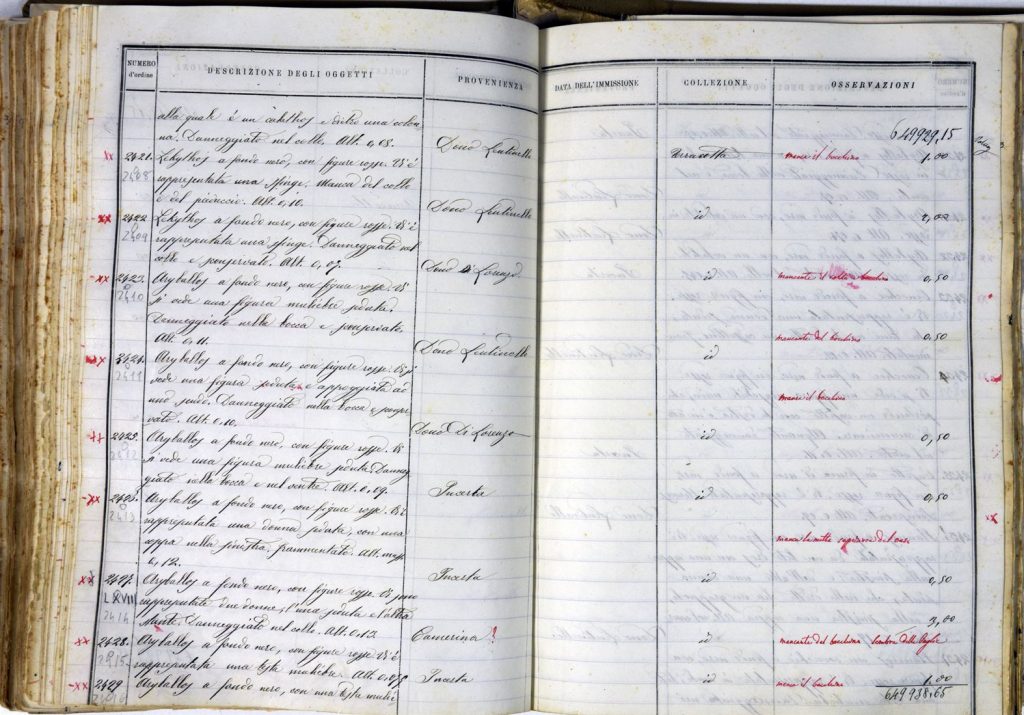 NUMERO d'ordine DESCRIZIONE DEGLI OGGETTI PROVENIENZA DATA DELL'IMMISSIONE COLLEZIONE OSSERVAZIONI
alla quale è un calathos e dietro una colon
na. Danneggiato nel collo. Alt. 0,08. 649929,15
xx 2421. Lekythos a fondo nero, con figure rosse. Vi è Dono Terracotta manca il bocchino 1.00
2408 rappresentata una sfinge. Manca del collo
e del Alt. 0,10.
xx 2422 Lekythos a fondo nero, con figure rosse. Vi è Dono id 1,00
2409 rappresentata una sfinge. Danneggiato nel
collo e Alt. 0,07.
xx 2423. Aryballos a fondo nero, con figure rosse. Vi Dono Di Lorenzo id mancante il collo e bocchino 0,50
2410 si vede una figura muliebre seduta.
Danneggiato nella bocca e
Alt. 0,11. mancante del bocchino 0,50
xx 2424. Aryballos a fondo nero, con figure rosse. Vi si Dono id
2411 vede una figura seduta e appoggiata ad
uno scudo. Danneggiato nella bocca e manca il bocchino
Alt. 0,10.
xx 2425. Aryballos a fondo nero, con figure rosse. Vi Dono Di Lorenzo id 0,50
2412 si vede una figura muliebre seduta. Danneg
giato nella bocca e nel ventre. Alt. 0,09.
xx 2426. Aryballos a fondo nero, con figure rosse. Vi è Incerta id 0,50
2413 rappresentata una donna seduta, con una
nella sinistra, frammentato. Alt. mass. manca la metà superiore del vaso
0,12.
xx 2427. Aryballos a fondo nero, con figure rosse. Vi sono Incerta id 0,50
LXVIII rappresentate due donne, l'una seduta e l'altra
2414 stante. Danneggiato nel collo. Alt. 0,13. 3,00
xx 2428. Aryballos a fondo nero, con figure rosse. Vi è Camerina ? id mancante del bocchino
2415 rappresentata una testa muliebre. Alt. 0,078
xx 2429 Aryballos a fondo nero, con una testa mulie Incerta id manca il bocchino 1.00
649938,65